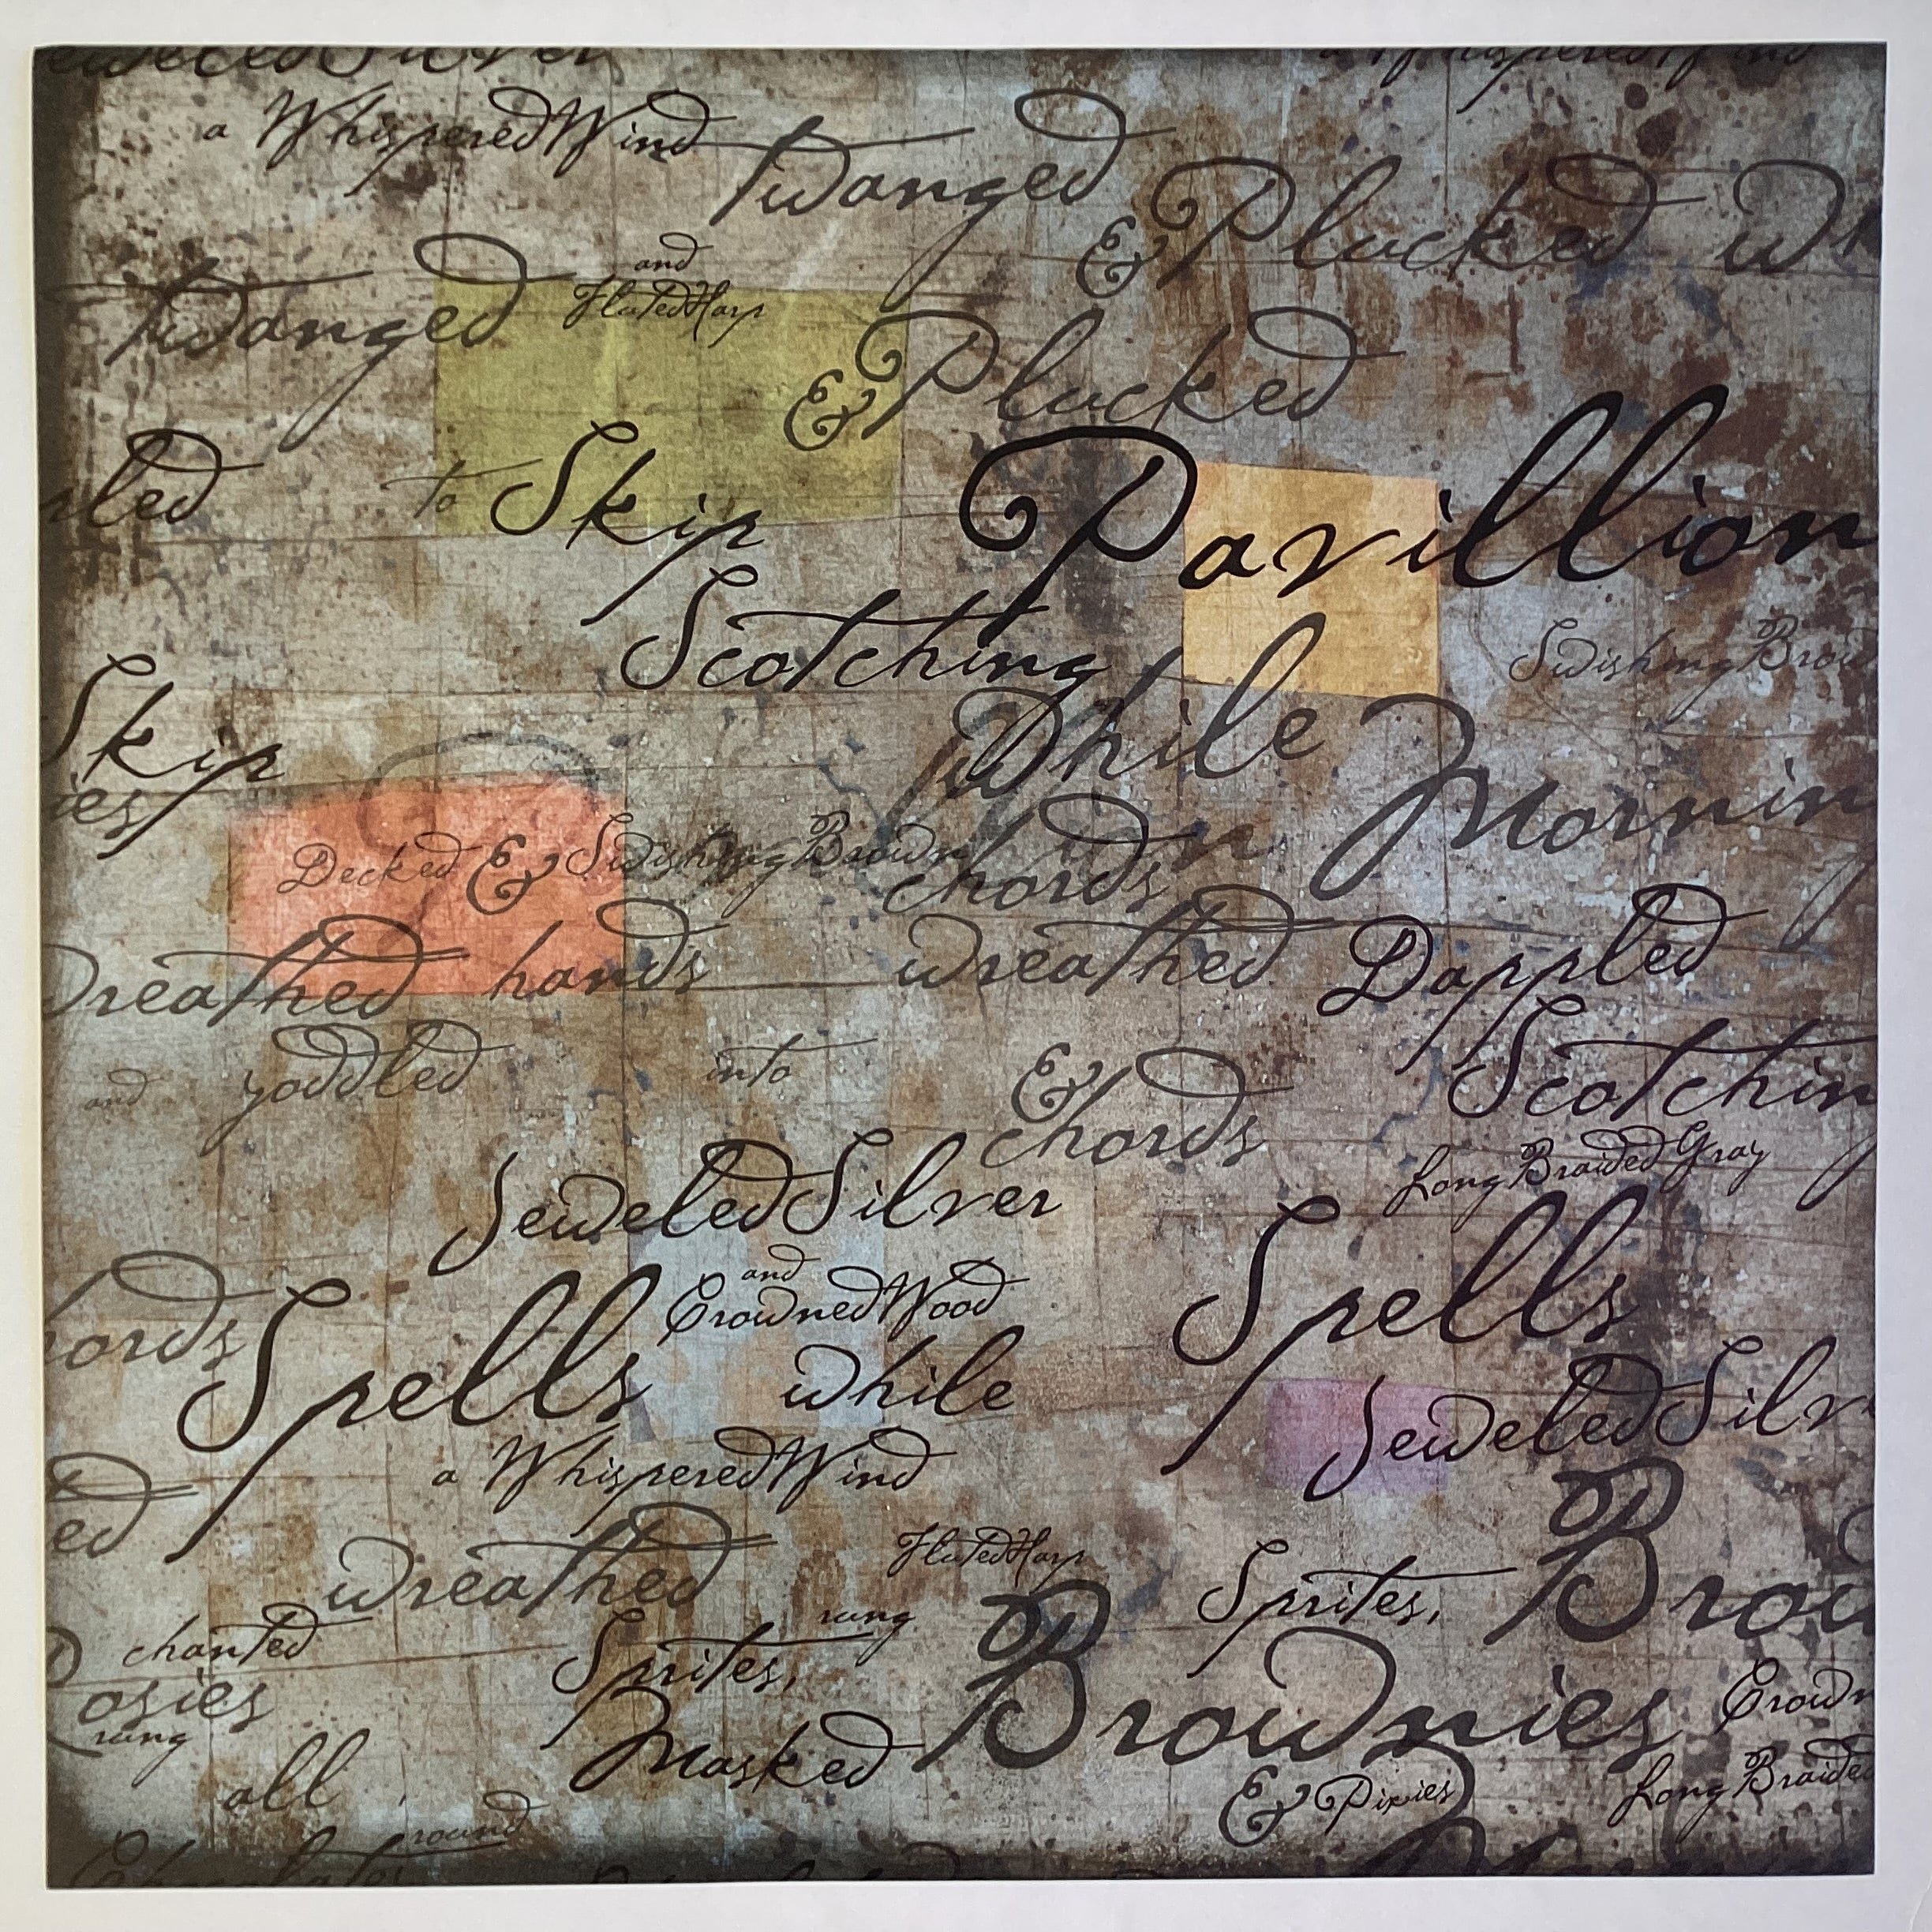 JeweledSilver
a WhisperedWind
a WhisperedWind
Twanged
& Plucked
Twanged
and
FlutedHarp
& Plucked
to Skip
Pavillion
Scotching
SwishingBrow
Skip
ies
While
Mornin
Decked & SwishingBrown
chords
wreathed hands
wreathed
Dappled
and yoddled into
&
chords
Scotchin
LongBraidedGray
JeweledSilver
Spells
and
CrownedWood
ords
Spells
while
JeweledSilv
a WhisperedWind
ed
wreathed
FlutedHarp
Sprites,
Brow
chanted
Sprites,
rung
osies
rung
Brownies
Crown
Masked
all
& Pixies
LongBraided
round